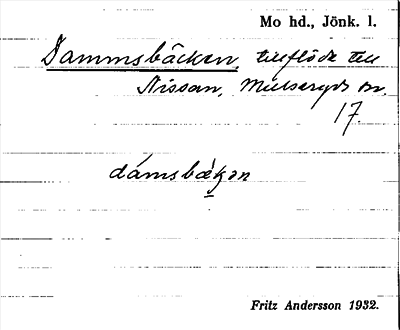 Mo hd., Jönk. l.
Dammsbäcken, tillflöde till
Nissan, Mulseryds sn.
17.
dámsbæ̀kən
Fritz Andersson 1932.